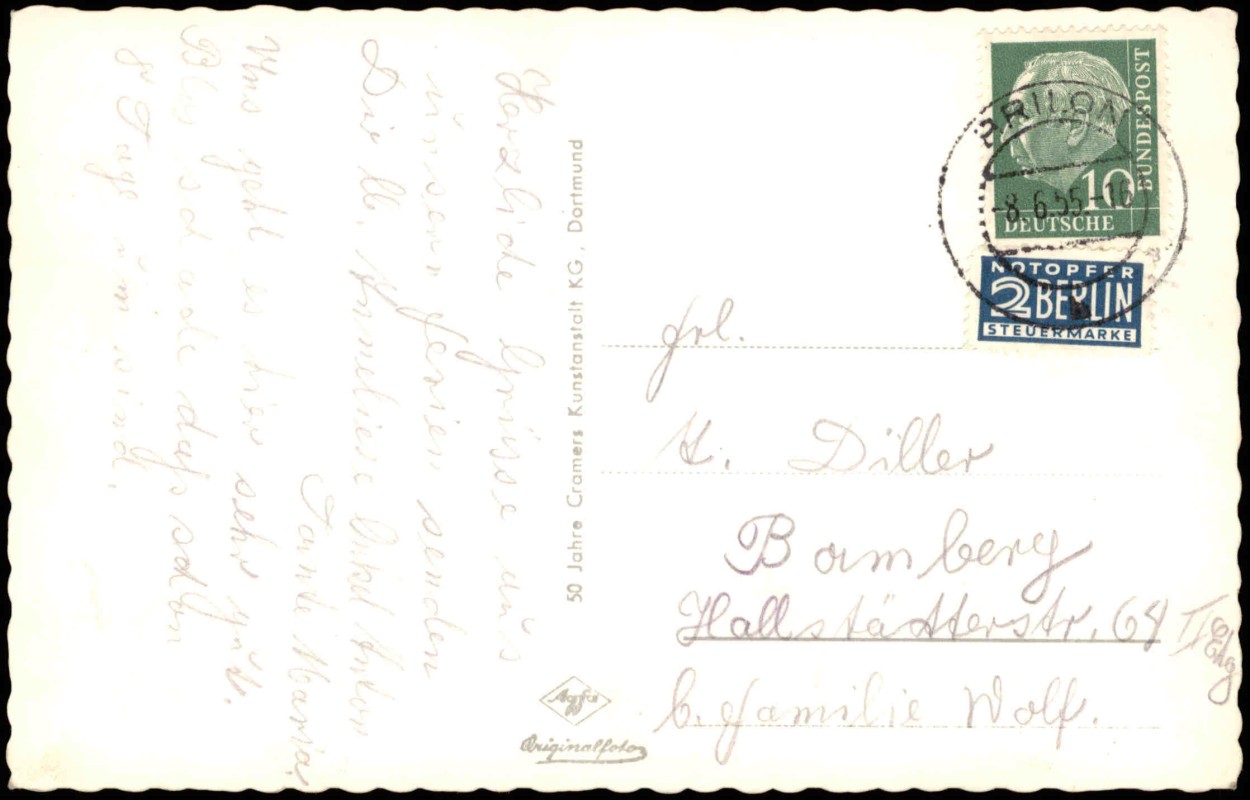 Herzliche Grüsse aus
unsern Ferien senden
Dir lb. Anneliese Onkel Anton
Tante Maria
Uns geht es hier sehr gut.
Blos schade daß schon
8 Tage um sind.
50 Jahre Cramers Kunstanstalt KG., Dortmund
Agfa
Originalfoto
BUNDESPOST
10
DEUTSCHE
BRILON
-8.6.55.-16
b
NOTOPFER
2 BERLIN
STEUERMARKE
Frl.
A. Diller
Bamberg
Hallstätterstr. 64 II Etg
b. Familie Wolf.